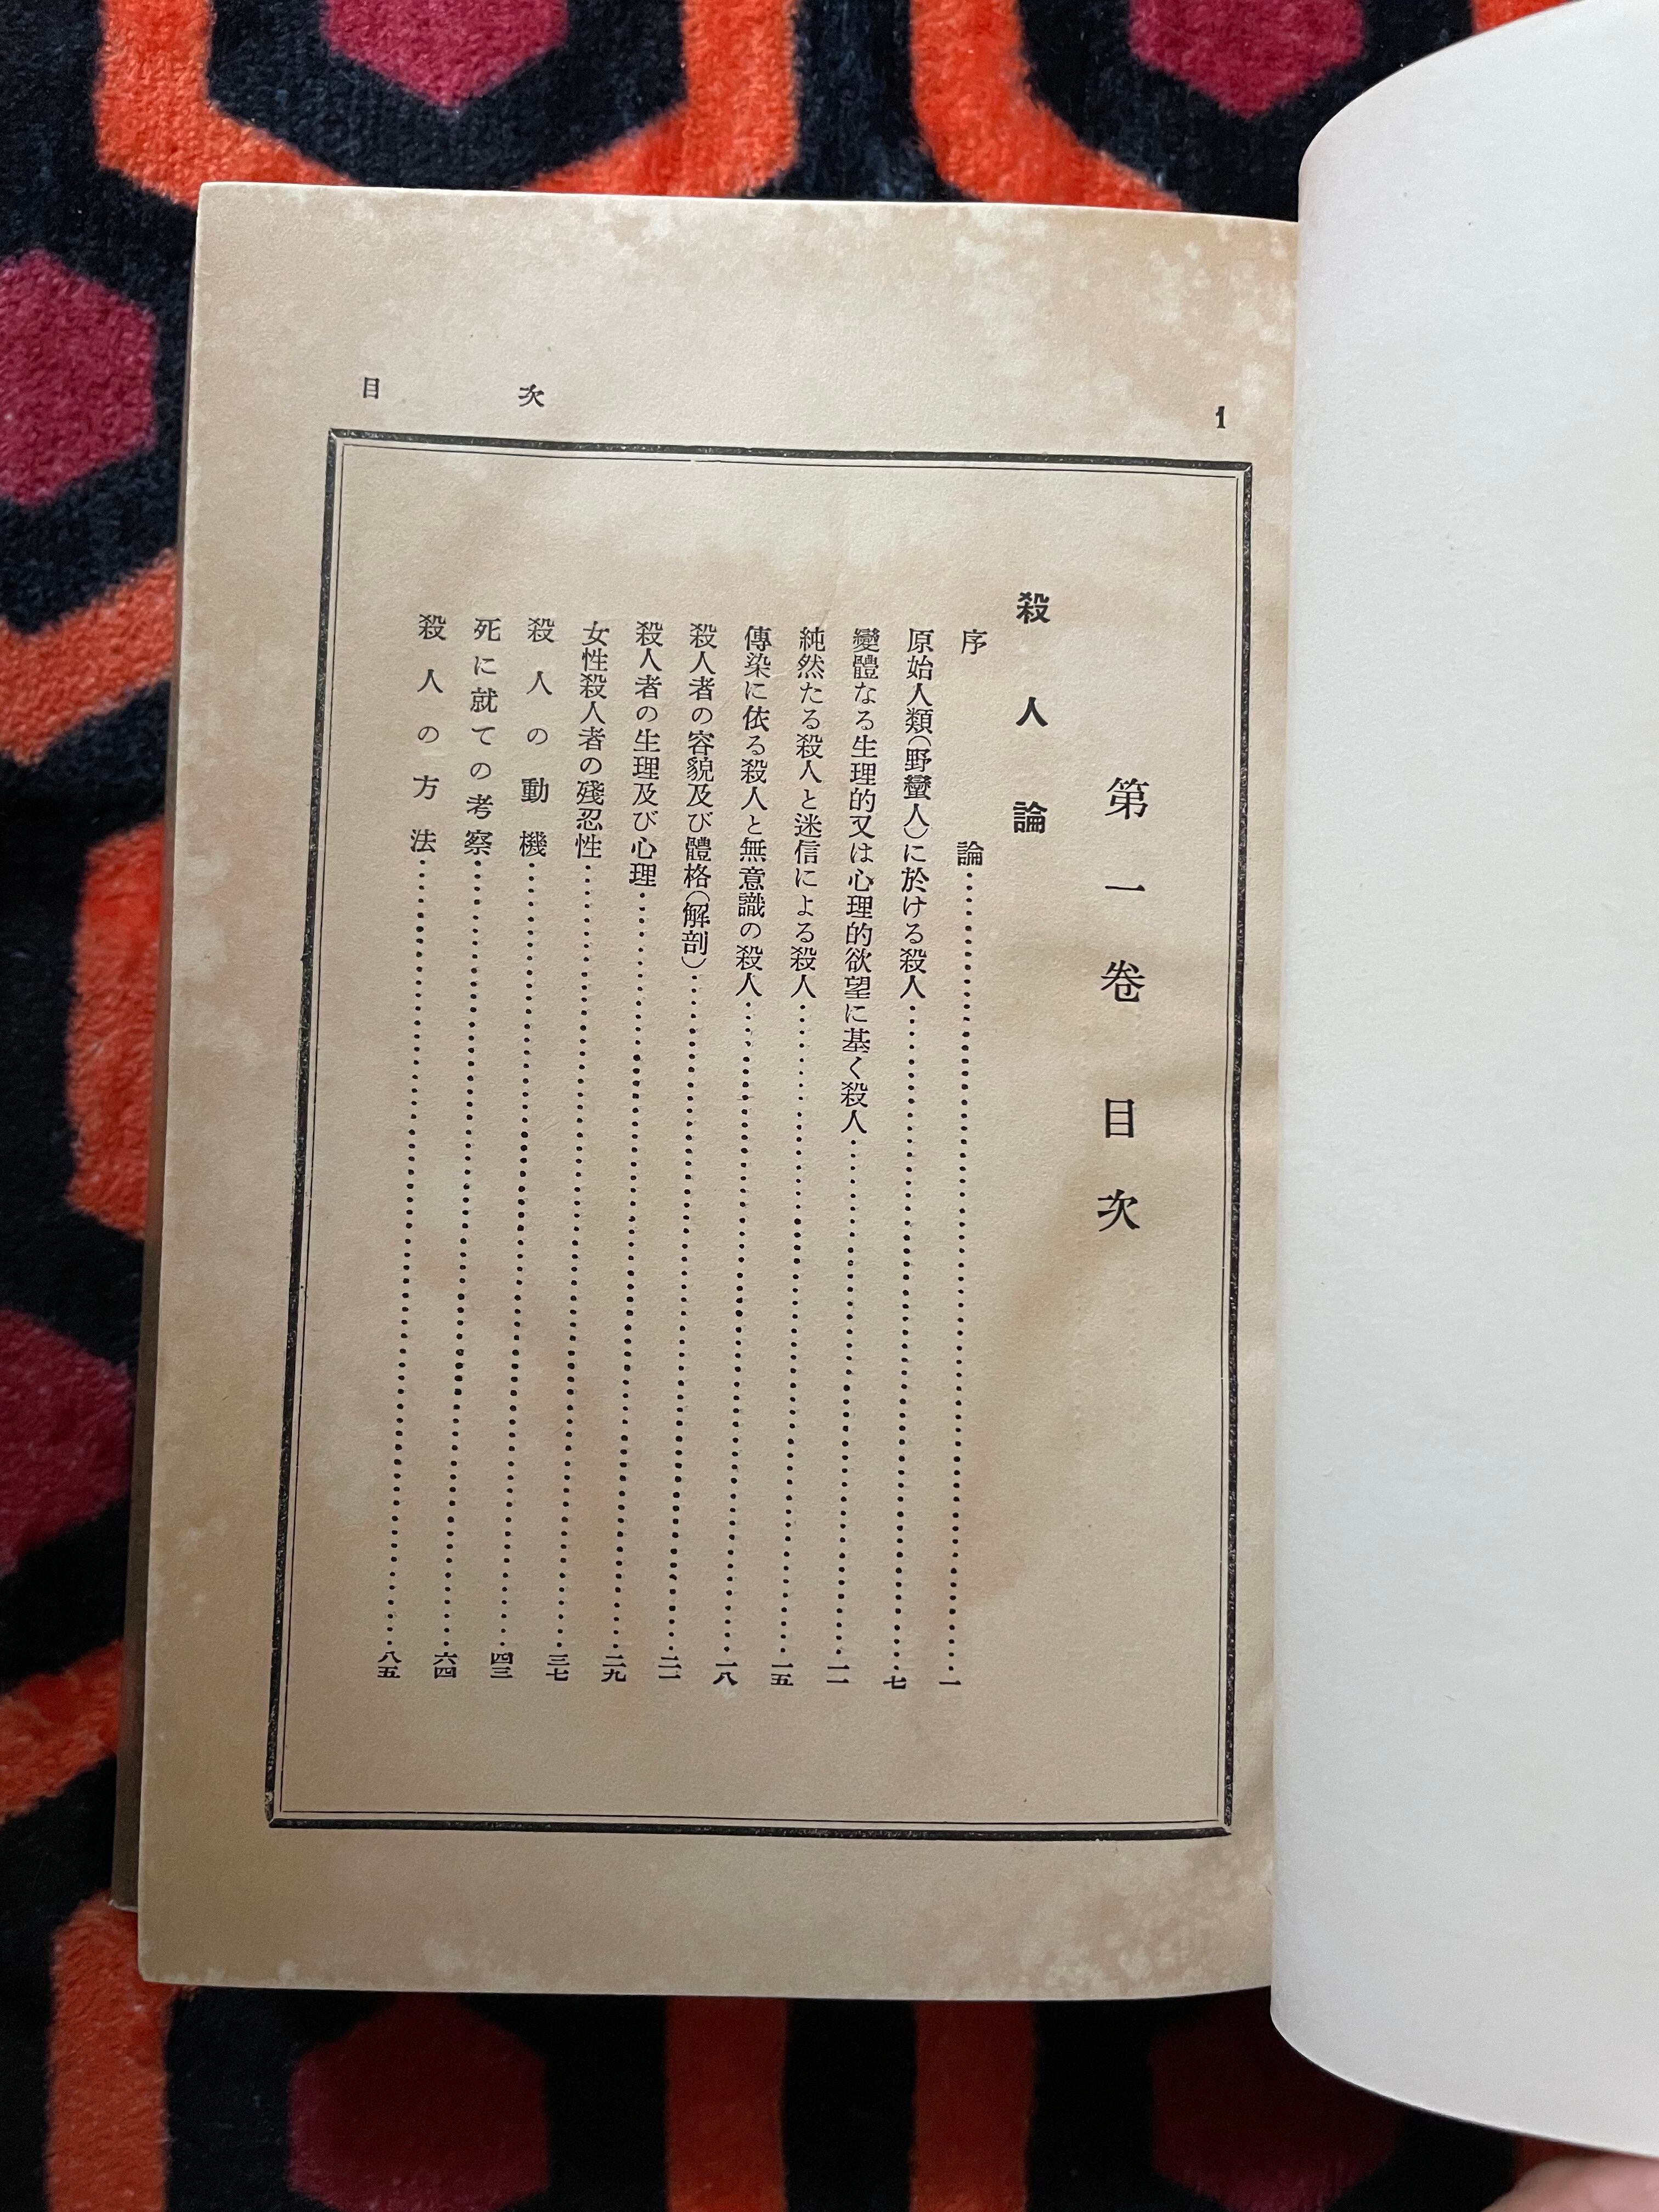 目次
1
第一卷 目次
殺人論
序論……一
原始人類(野蠻人)に於ける殺人……七
變體なる生理的又は心理的欲望に基く殺人……一一
純然たる殺人と迷信による殺人……一五
傳染に依る殺人と無意識の殺人……一八
殺人者の容貌及び體格(解剖)……二一
殺人者の生理及び心理……二九
女性殺人者の殘忍性……三七
殺人の動機……四三
死に就ての考察……六四
殺人の方法……八五